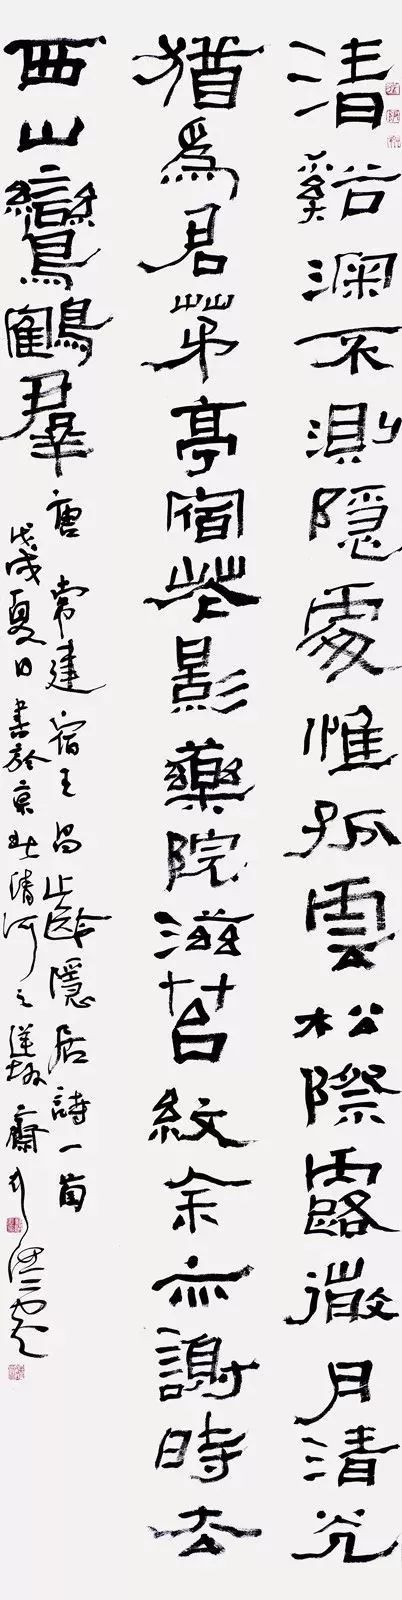 清谿深不測隱處惟孤雲松際露微月清光
猶爲君茅亭宿花影藥院滋苔紋余亦謝時去
西山鸞鶴羣 唐 常建 宿王昌齡隱居詩一首
戊戌夏日書於京北清河之 齋